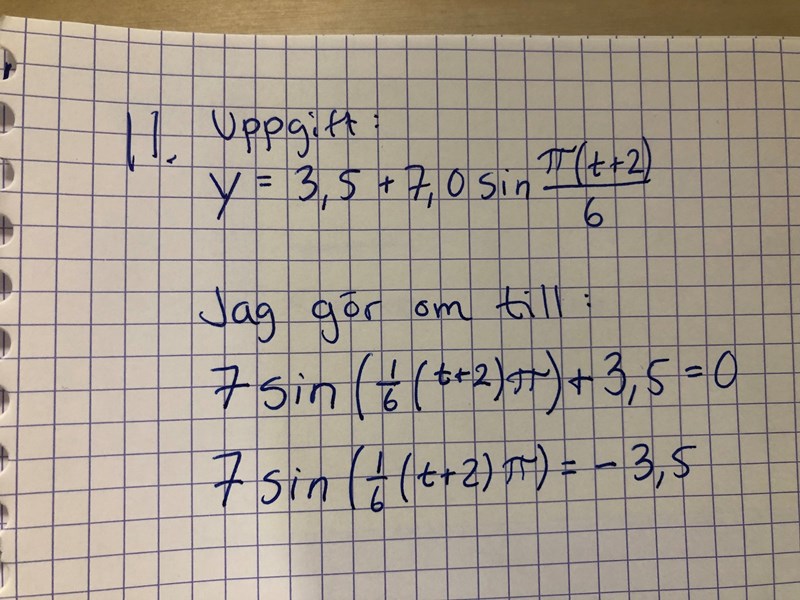 11. Uppgift:
y = 3,5 + 7,0 sin π(t+2)/6
Jag gör om till:
7 sin (1/6 (t+2)π) + 3,5 = 0
7 sin (1/6 (t+2)π) = - 3,5